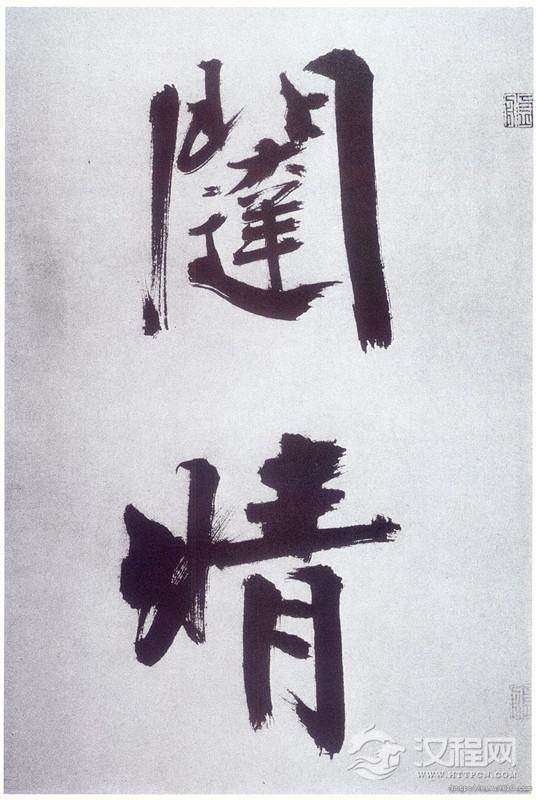 闥
情
汉程网
WWW.HTTPCN.COM